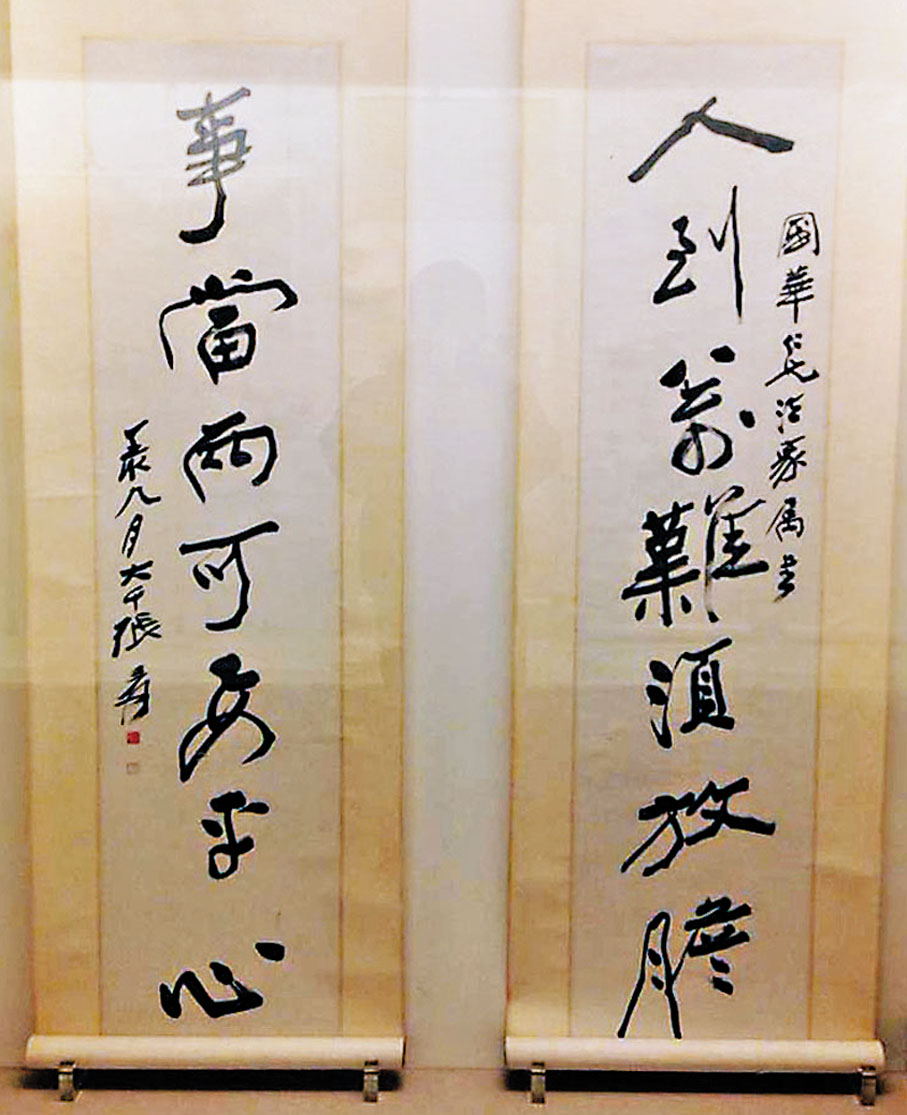 國華仁兄法家属書
人到萬難須放膽
事當兩可要平心
月大千張爰